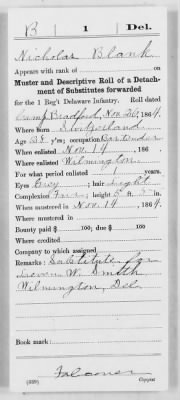 B 1 Del.
Nicholas Blank
Appears with rank of
Muster and Descriptive Roll of a Detach-
ment of Substitutes forwarded
for the 1 Reg't Delaware Infantry. Roll dated
Camp Bradford, Nov 30, 1864.
Where born Switzerland
Age 38 y'rs; occupation Bartender
When enlisted Nov. 14, 1864.
Where enlisted Wilmington.
For what period enlisted 1 years.
Eyes Grey; hair Light
Complexion Fair; height 5 ft. in.
When mustered in Nov. 14, 1864.
Where mustered in
Bounty paid $ 100; due $ 100
Where credited
Company to which assigned
Remarks: Substitute for
W. Smith
Wilmington, Del.
Book mark:
(339) Falconer
Copyist